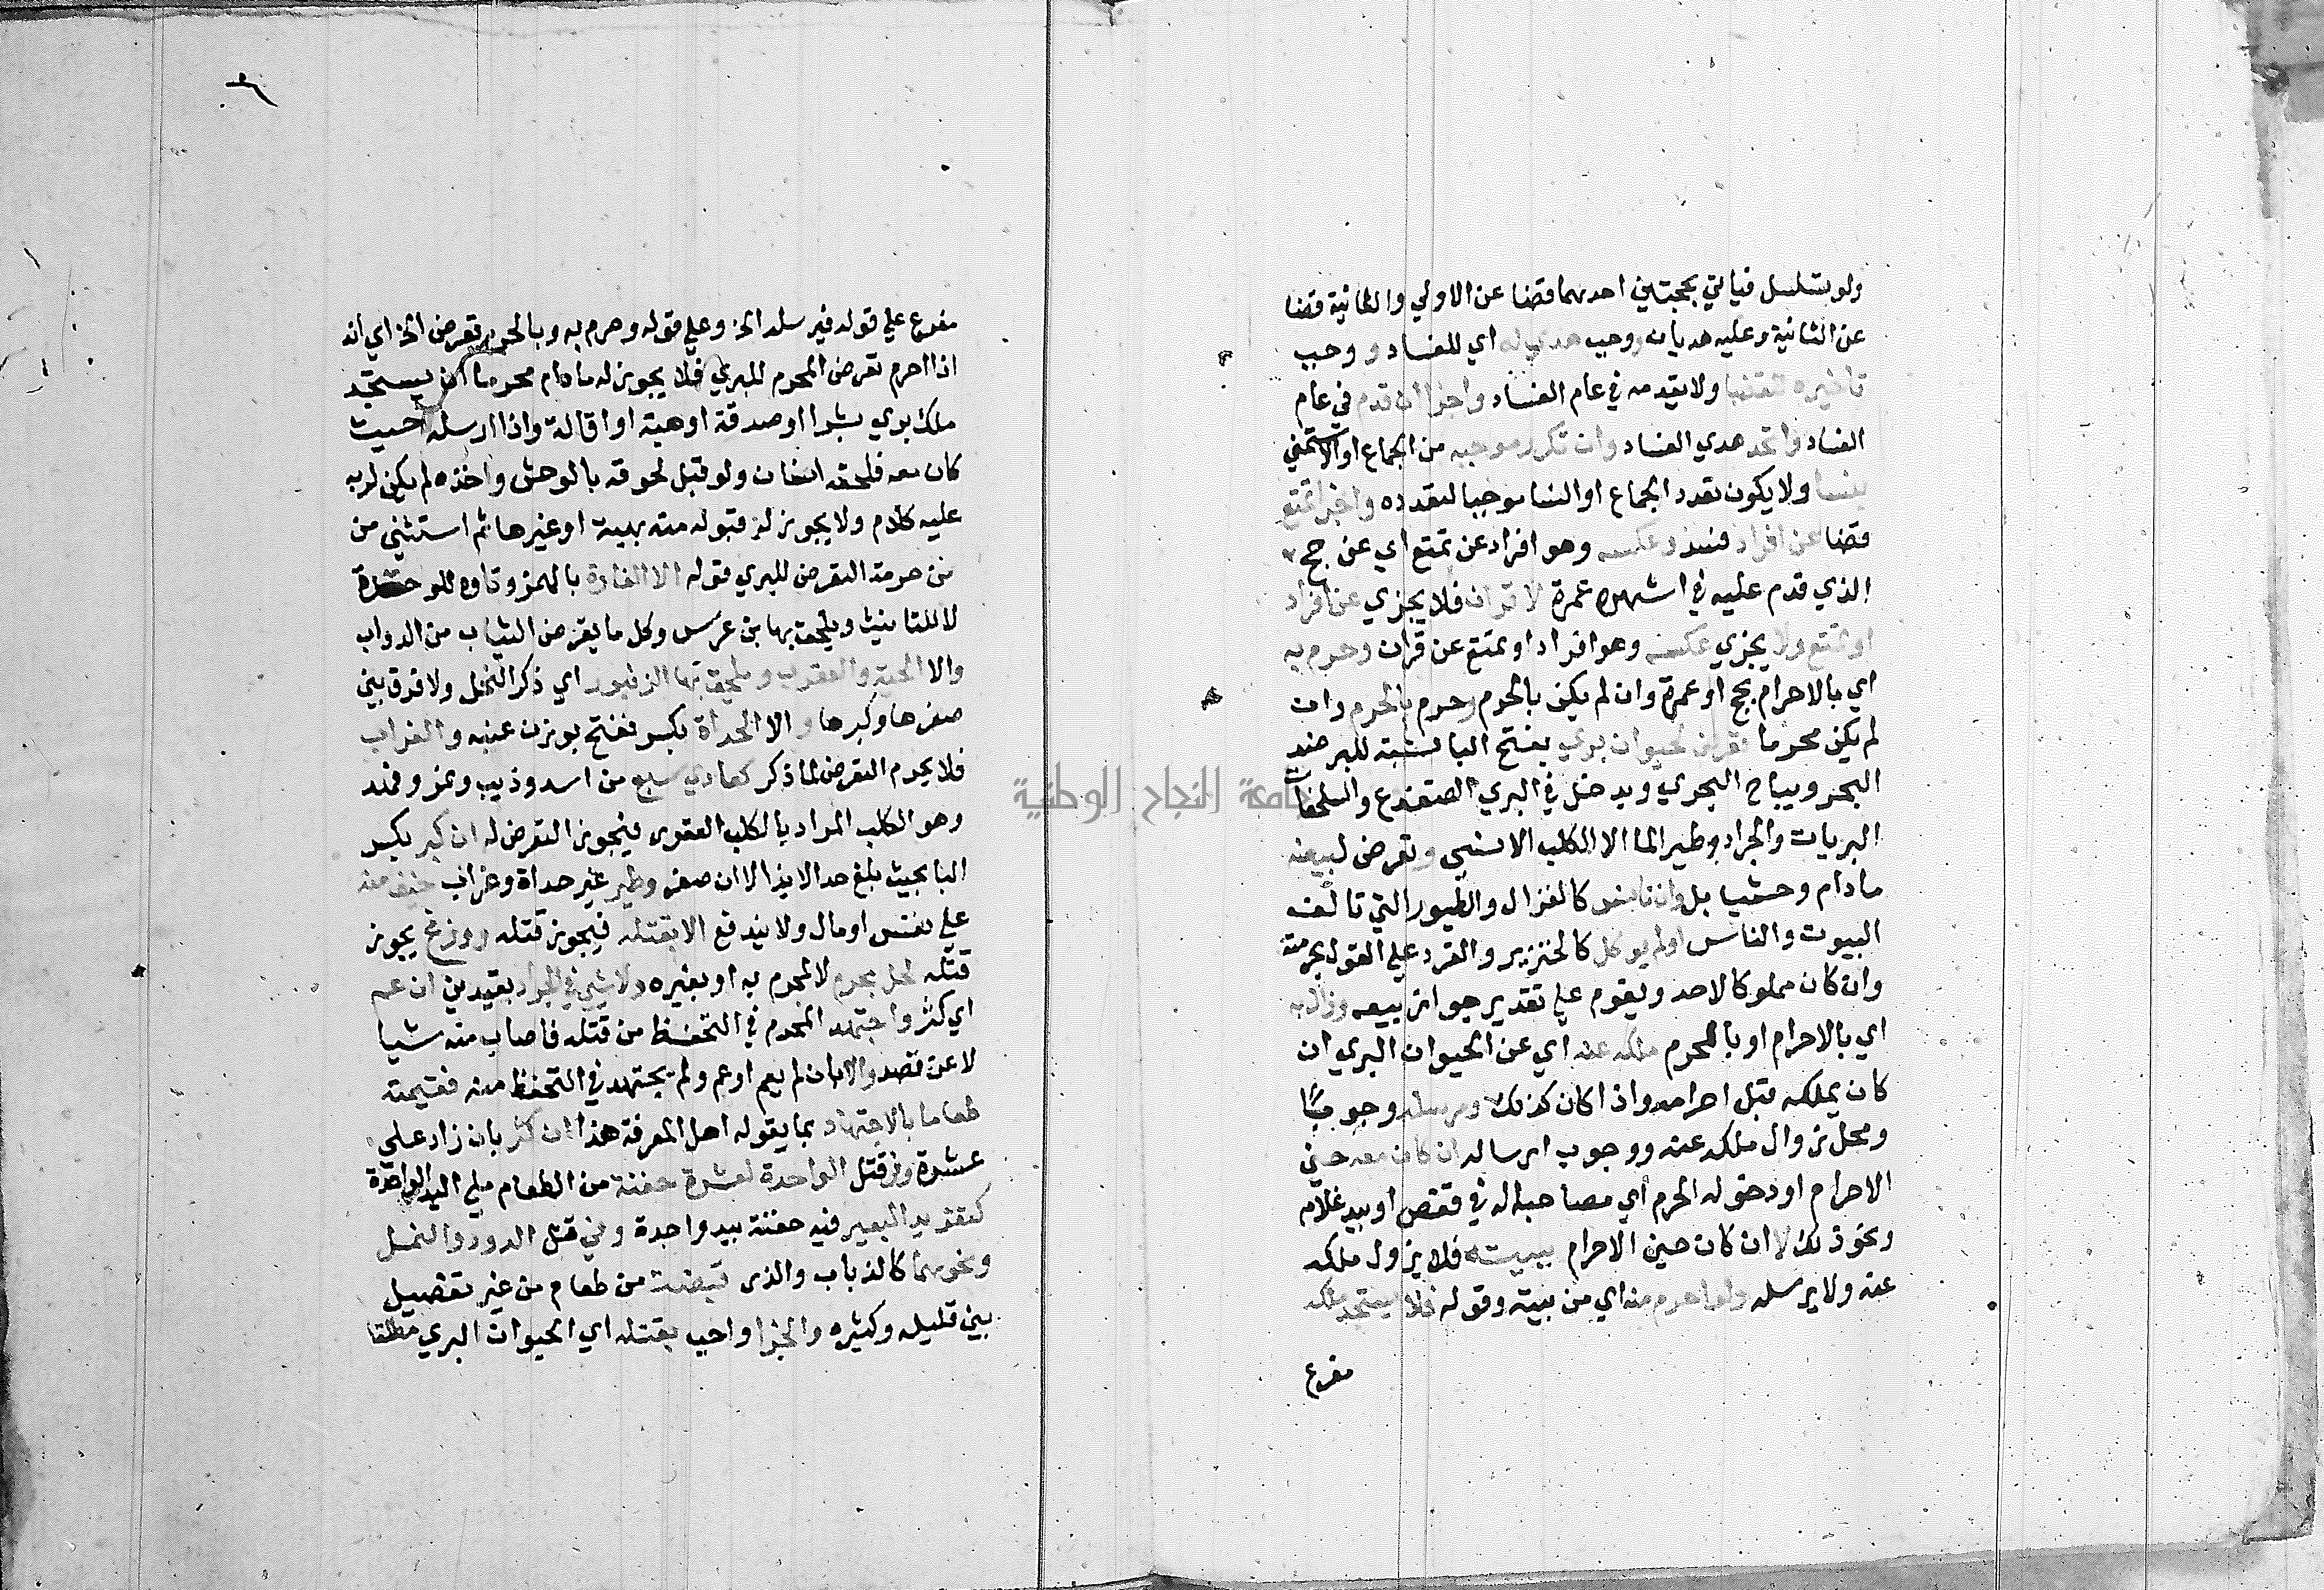 ولو تسلسل فياتي بحجتين احدهما قضا عن الاولي والثانية قضا
عن الثانية وعليه هديان ووجب هدي له اي للفساد و وجب
تاخيره للقضا ولا يقدمه في عام الفساد واجزا ان قدم في عام
الفساد واتحد هدي الفساد وان تكرر موجبه من الجماع او الاستمني
بنسا ولا يكون تعدد الجماع او النسا موجبا لتعدده واجزا تمتع
قضا عن افراد فسد وعكسه وهو افراد عن تمتع اي عن حج
الذي قدم عليه في اشهره عمرة لا قران فلا يجزي عن افراد
او تمتع ولا يجزي عكسه وهو افراد او تمتع عن قران وحرم به
اي بالاحرام بحج او عمرة وان لم يكن بالحرم وحرم بالحرم وان
لم يكن محرما تعرض لحيوان بري بفتح البا نسبته للبر ضد
البحر ويباح البحري ويدخل في البري الضفدع والسلحفات
البريات والجراد وطير الما الا الكلب الانسي وتعرض لبيضه
مادام وحشيا بل وان تانس كالغزال والطيور التي تالف
البيوت والناس او لم يوكل كالخنزير والقرد علي القول بحرمته
وان كان مملوكا لاحد ويقوم علي تقدير جواز بيعه وزال به
اي بالاحرام او بالحرم ملكه عنه اي عن الحيوان البري ان
كان يملكه قبل احرامه واذا كان كذلك ويرسله وجوبًا
ومحل زوال ملكه عنه ووجوب ارساله ان كان معه حين
الاحرام او دخوله الحرم اي مصاحبا له في قفص او بيد غلامه
ونحو ذلك لا ان كان حين الاحرام ببيته فلا يزول ملكه
عنه ولا يرسله ولو احرم منه اي من بيته وقوله فلا يستجد ملكه
مفرع
مفرع علي قوله فيرسله الخ وعلي قوله وحرم به وبالحرم تعرض الخ اي انه
اذا احرم تعرض المحرم للبري فلا يجوز له مادام محرما ان يستجد
ملك بري بشرا او صدقة او هبة او اقالة واذا ارسله حيث
كان معه فلحقه انسان ولو قبل لحوقه بالوحش واخذه لم يكن لربه
عليه كلام ولا يجوز له قبوله منه بهبة او غيرها ثم استثني من
من حرمة التعرض للبري قوله الا الفارة بالهمز وتاوه للوحدة
لا للتانيث ويلحق بها بن عرس وكل ما يقرض الثياب من الدواب
والا الحية والعقرب ويلحق بها الزنبور اي ذكر النحل ولا فرق بين
صغرها وكبرها والا الحداة بكسر ففتح بوزن عنبه والغراب
فلا يحرم التعرض لما ذكر كعادي سبع من اسد وذيب ونمر وفهد
وهو الكلب المراد بالكلب العقور فيجوز التعرض له ان كبر بكسر
البا بحيث بلغ حد الايذا لا ان صغر وطير غير حداة وغراب خيف منه
علي نفس او مال ولا يندفع الا بقتله فيجوز قتله ووزغ يجوز
قتله لحل بحرم لا لمحرم به او بغيره ولا شي في الجراد بقيدين ان عم
اي كثر واجتهد المحرم في التحفظ من قتله فاصاب منه شيا
لا عن قصد والا بان لم يعم او عم ولم يجتهد في التحفظ منه فقيمته
طعاما بالاجتهاد بما يقوله اهل المعرفة هذا ان كثر بان زاد علي
عشرة وفي قتل الواحدة لعشرة حفنة من الطعام ملي اليد الواحدة
كتقريد البعير فيه حفنة بيد واحدة وفي قتل الدود والنمل
ونحوهما كالذباب والذر قبضة من طعام من غير تفصيل
بين قليله وكثيره والجزا واجب بقتله اي الحيوان البري مطلقا
جامعة النجاح الوطنية